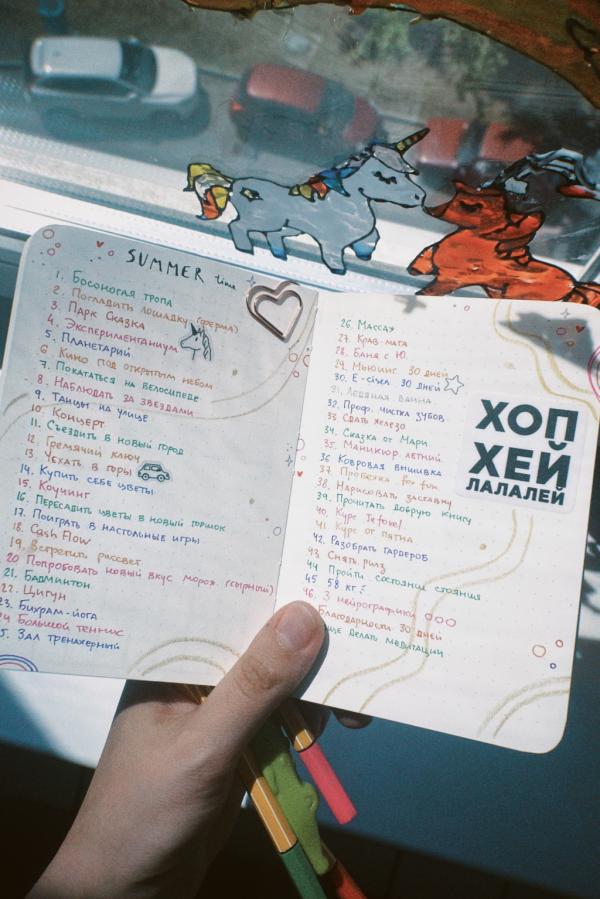 SUMMER time
1. Босоногая тропа
2. Погладить лошадку (ферма)
3. Парк Сказка
4. Экспериментаниум
5. Планетарий
6. Кино под открытым небом
7. Покататься на велосипеде
8. Наблюдать за звездами
9. Танцы на улице
10. Концерт
11. Съездить в новый город
12. Гремячий ключ
13. Уехать в горы
14. Купить себе цветы
15. Коучинг
16. Пересадить цветы в новый горшок
17. Поиграть в настольные игры
18. Cash Flow
19. Встретить рассвет
20 Попробовать новый вкус морож. (сырный)
21. Бадминтон
22. Цигун
23. Бихрам-йога
24 Большой теннис
25. Зал тренажерный
26. Массаж
27. Крав-мага
28. Баня с Ю.
29. Мьюинг 30 дней
30. E-сигел 30 дней
31. Ледяная ванна
32. Проф. чистка зубов
33 Сдать железо
34. Сказка от Мари
35. Маникюр летний
36 Ковровая вышивка
37. Пробежка for fun
38. Нарисовать заставку
39. Прочитать добрую книгу
40. Курс
41. Курс от пятна
42. Разобрать гардероб
43 Снять рилз
44 Пройти состояния
45 58 кг
46. 3 нейрографики
Благодарности 30 дней
делать медитации
ХОП
ХЕЙ
ЛАЛАЛЕЙ